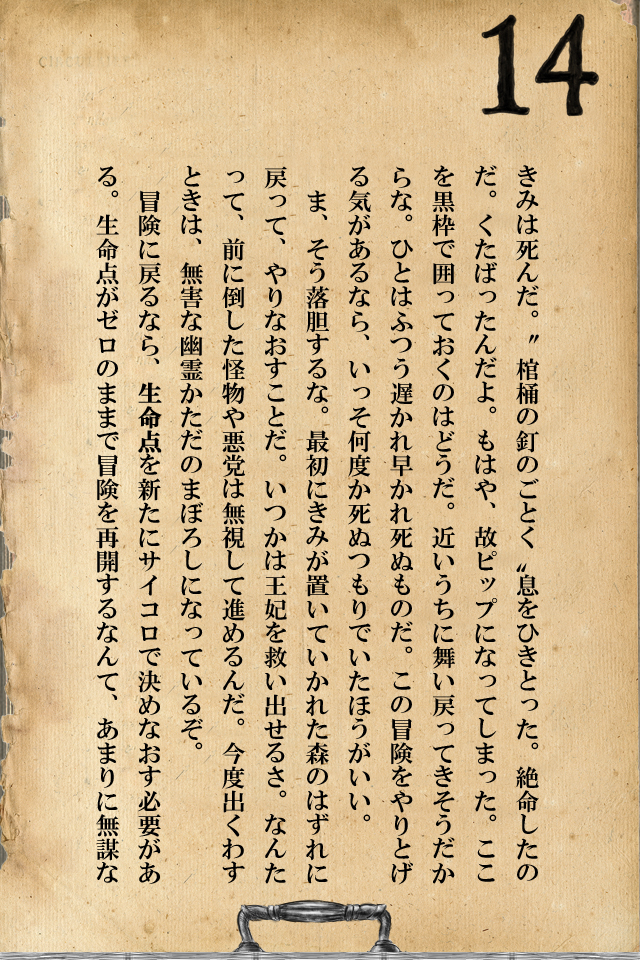 14
きみは死んだ。〝棺桶の釘のごとく〟息をひきとった。絶命したの
だ。くたばったんだよ。もはや、故ピップになってしまった。ここ
を黒枠で囲っておくのはどうだ。近いうちに舞い戻ってきそうだか
らな。ひとはふつう遅かれ早かれ死ぬものだ。この冒険をやりとげ
る気があるなら、いっそ何度か死ぬつもりでいたほうがいい。
　ま、そう落胆するな。最初にきみが置いていかれた森のはずれに
戻って、やりなおすことだ。いつかは王妃を救い出せるさ。なんた
って、前に倒した怪物や悪党は無視して進めるんだ。今度出くわす
ときは、無害な幽霊かただのまぼろしになっているぞ。
　冒険に戻るなら、生命点を新たにサイコロで決めなおす必要があ
る。生命点がゼロのままで冒険を再開するなんて、あまりに無謀な